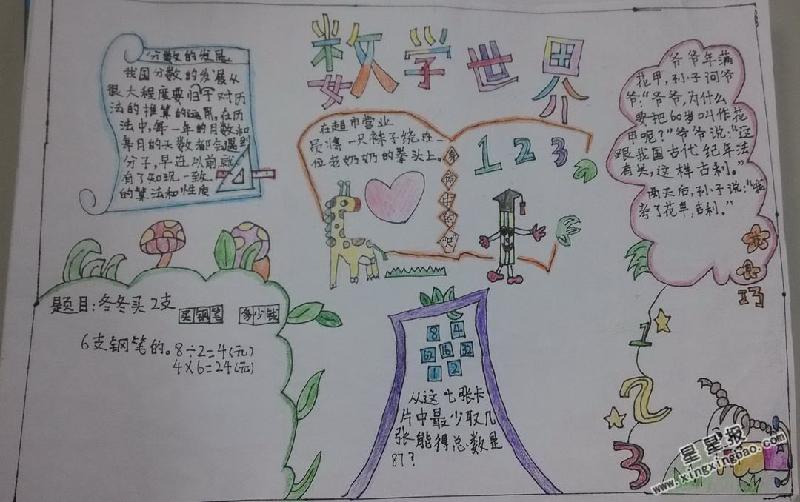 数学世界
分数的发展
我国分数的发展从
很大程度要归于对历
法的推算的运用,在历
法中,每一年的月数和
每月的天数都会遇到
分子,早在以前就
有了如现一致
的算法和性质
在超市营业
一只袜子绕在
一位老奶奶的拳头上。
1 2 3
爷爷年满
花甲,孙子问爷
爷:“爷爷,为什么
要把60岁叫作花
甲呢?”爷爷说:“这
跟我国古代纪年法
有关,这样吉利。”
两天后,孙子说:
了花草,吉利。”
巧
题目:冬冬买2支
买钢笔 多少钱
6支钢笔的。8÷2=4(元)
4×6=24(元)
从这七张卡
片中最少取几
张能得总数是
87?
1
2
3
星星报
www.xingxingbao.com